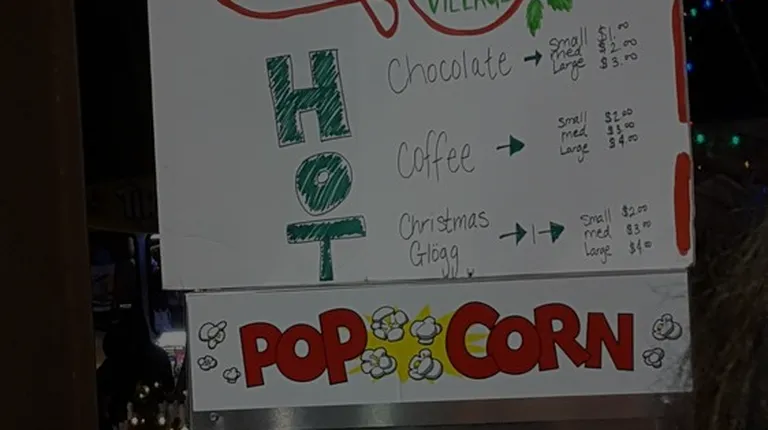 VILLAGE
HOT
Chocolate → Small $1.00
med $2.00
Large $3.00
Coffee → Small $2.00
med $3.00
Large $4.00
Christmas Glögg → | → Small $2.00
med $3.00
Large $4.00
POP CORN